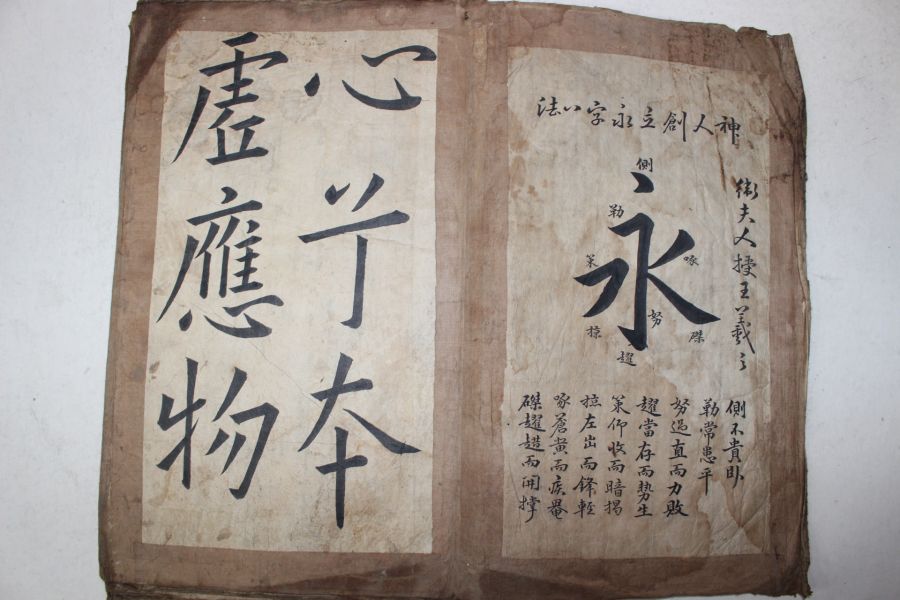 神人創立永字八法
衛夫人授王羲之
側
勒
永
策
啄
努
掠
磔
趯
側不貴臥
勒常患平
努過直而力敗
趯當存而勢生
策仰收而暗揭
掠左出而鋒輕
啄蒼黃而疾罨
磔趯趞而開撐
心兮本
虛應物